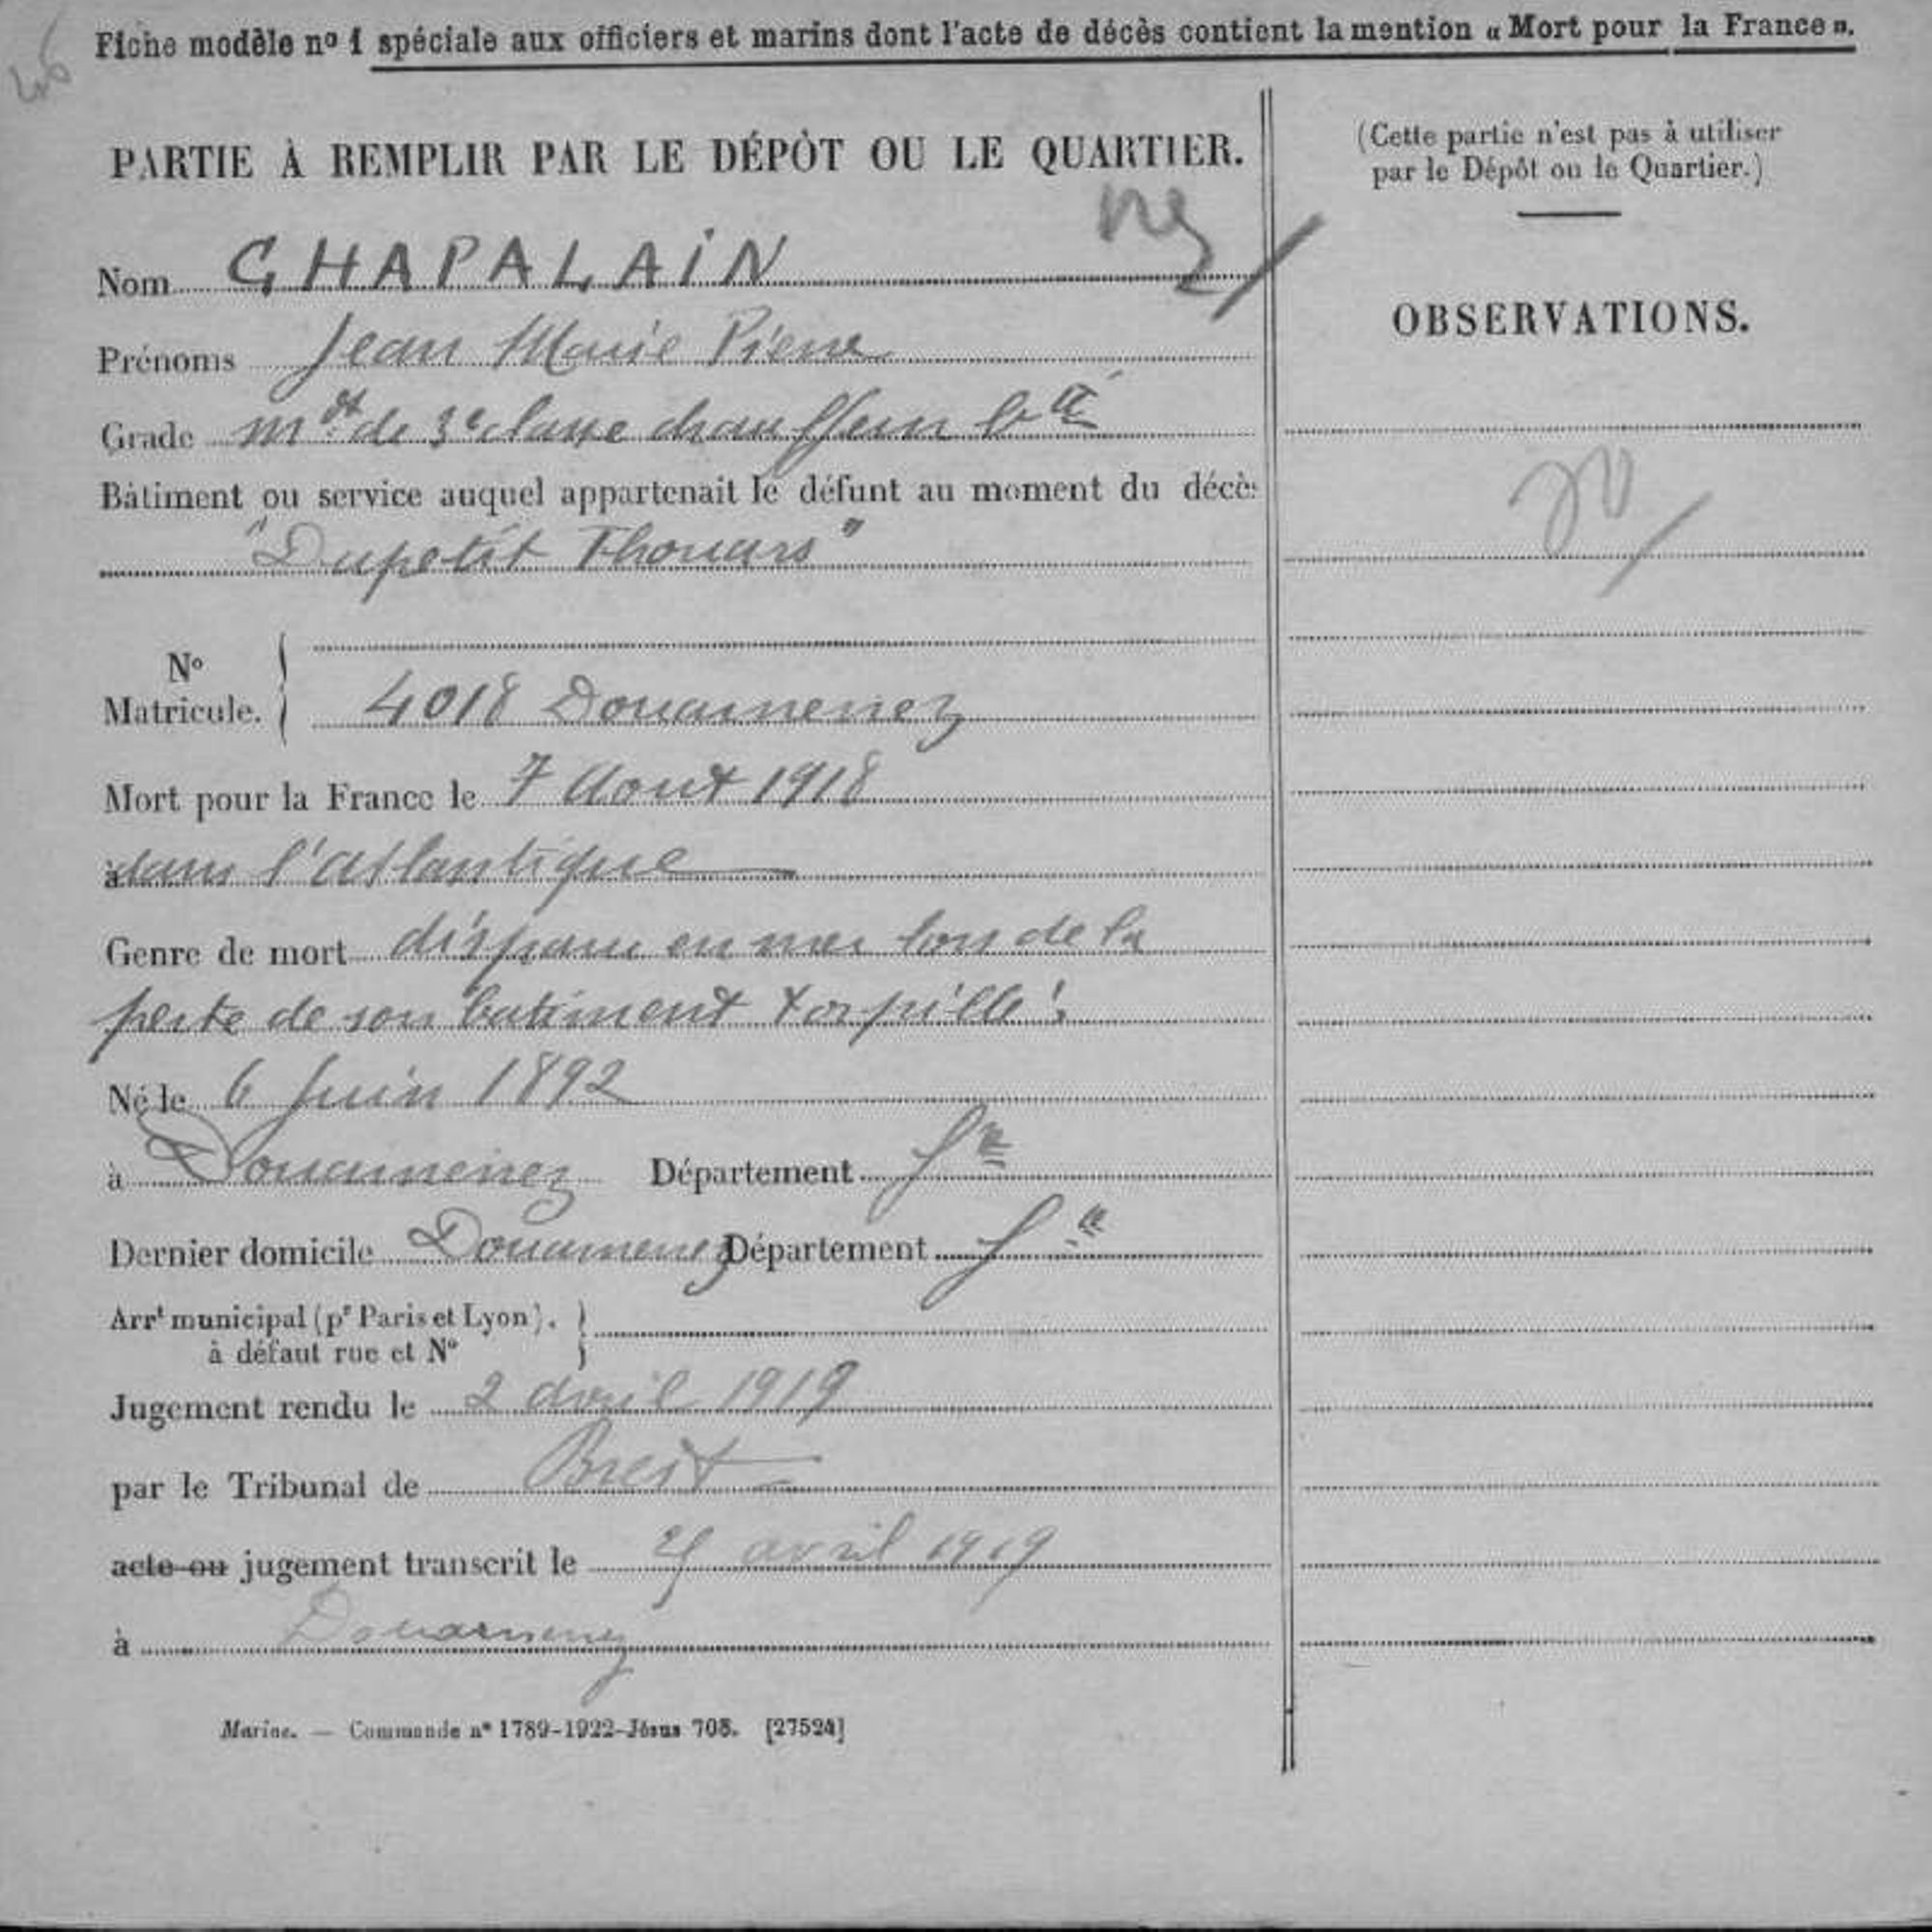 46
Fiche modèle nº 1 spéciale aux officiers et marins dont l'acte de décès contient la mention « Mort pour la France ».
PARTIE À REMPLIR PAR LE DÉPÔT OU LE QUARTIER.
Nom CHAPALAIN
Prénoms Jean Marie Pierre
Grade mot de 3e classe chauffeur bté
Bâtiment ou service auquel appartenait le défunt au moment du décès
"Dupetit Thouars"
Nº
Matricule. 4018 Douarnenez
Mort pour la France le 7 Aout 1918
à dans l'atlantique
Genre de mort disparu en mer lors de la
perte de son batiment torpillé
Né le 6 Juin 1892
à Douarnenez Département fre
Dernier domicile Douarnenez Département fre
Arrt municipal (pr Paris et Lyon).
à défaut rue et Nº
Jugement rendu le 2 avril 1919
par le Tribunal de Brest
acte ou jugement transcrit le avril 1919
à Douarnenez
Marine. — Commande nº 1789-1922-Jésus 703. [27524]
(Cette partie n'est pas à utiliser
par le Dépôt ou le Quartier.)
OBSERVATIONS.